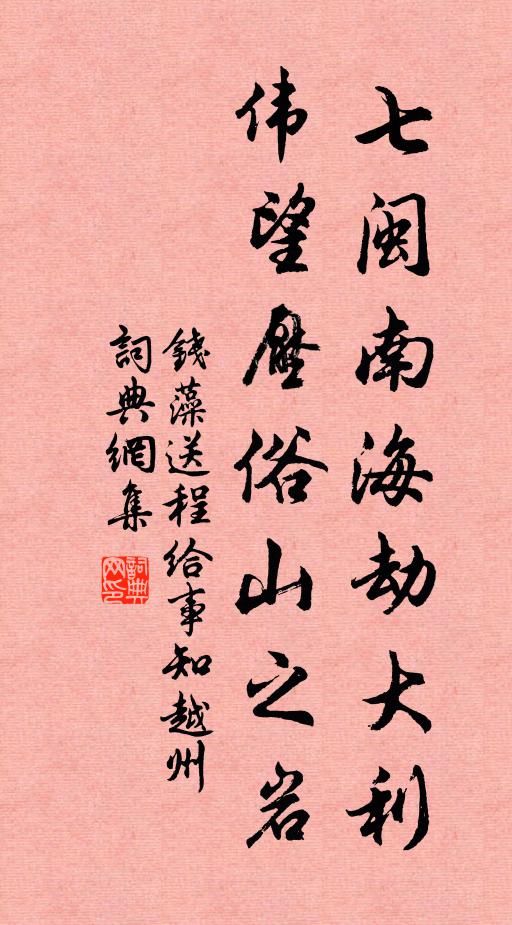 七闽南海劫大利
伟望压俗山之岩
錢藻送程给事知越州
詞典網集
詞典网印